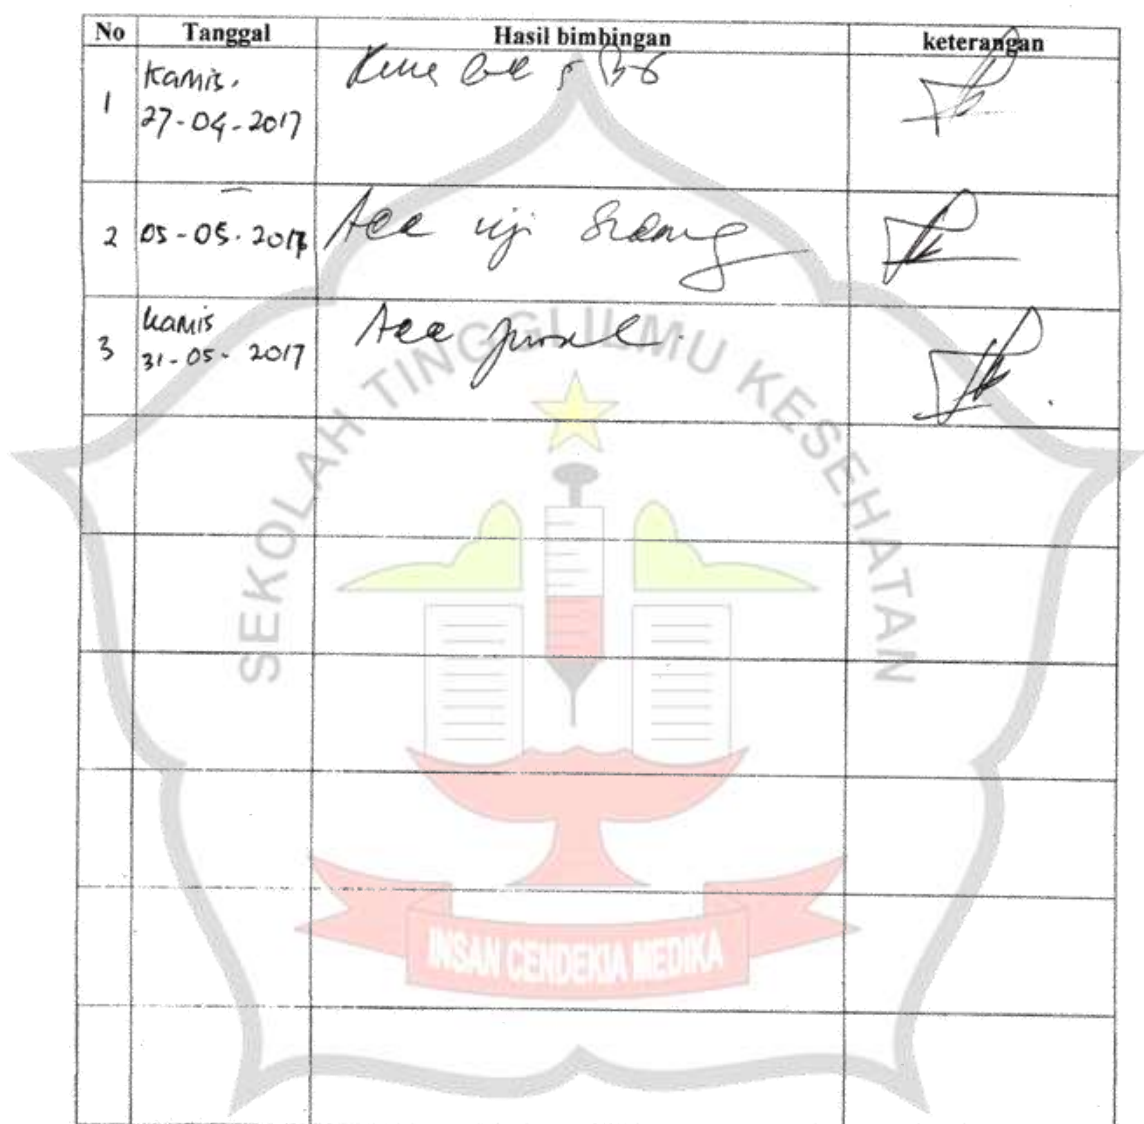 No Tanggal Hasil bimbingan keterangan
1 Kamis, 27-04-2017
2 05-05-2017 Acc uji Sidang
3 Kamis 31-05-2017 Acc
SEKOLAH TINGGI ILMU KESEHATAN
INSAN CENDEKIA MEDIKA